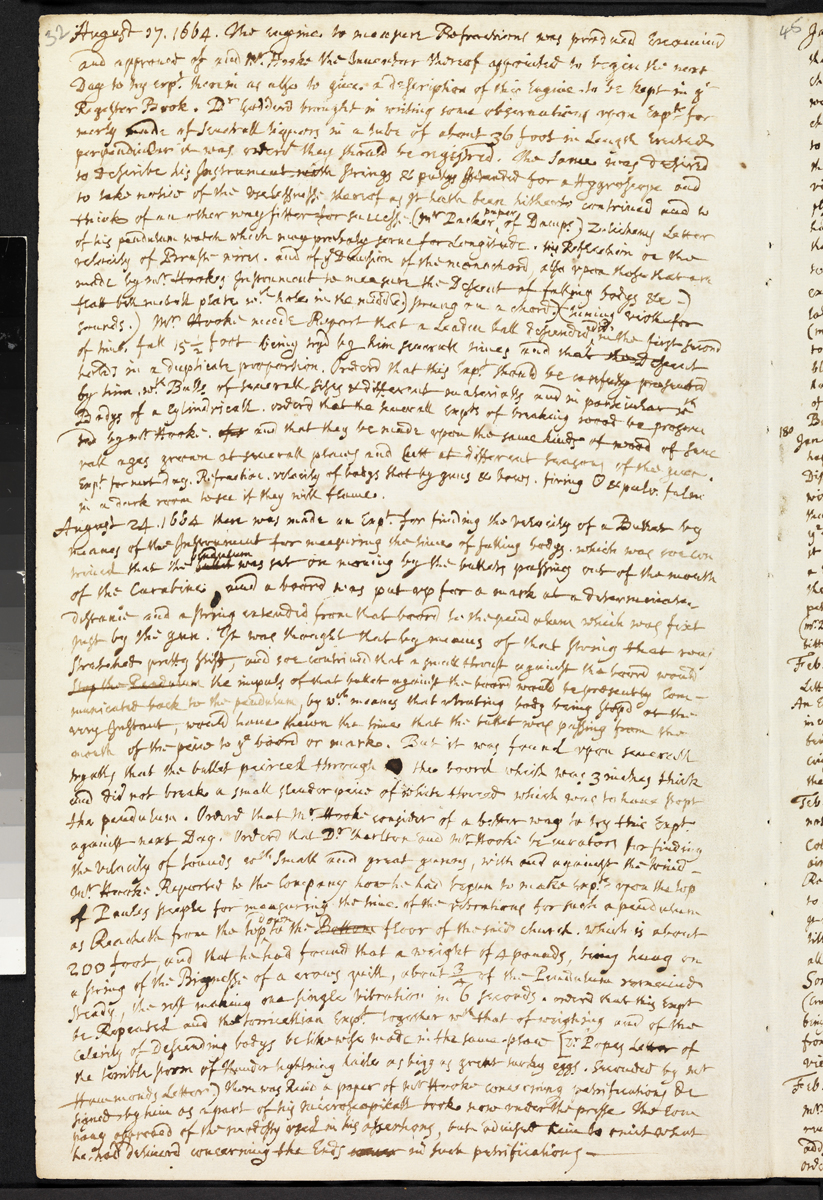 32 August 17. 1664. The engine to measure Refractions was produced Examined
and approved of and Mr. Hooke the Inventor thereof appointed to begin the next
Day to try expts therein as also to give a description of this Engine to be kept in ye
Register Book. Dr Goddard brought in writing some observations upon Expts for
merly made of severall liquors in a tube of about 36 foot in Length Erected
perpendicular it was orderd they should be registred. The same was desired
to describe his Instrument with strings & pullys Intended for a Hygroscope and
to take notice of the uselessnesse thereof as it hath been hitherto contrived and to
think of an other way fitter for successe (Mr Packer paper of Damps) Zulichems Letter
of his pendulum watch which may probaly serve for Longitude. his Reflection on the
velocity of Bronse wires. and of ye Division of the monochord, also upon those that are
made by mr. Hookes Instrument to measure the Descent of falling bodys &c -)
flatt bell metall plate wth hole in the middle) strung on a chord) (
sounds.) Mr. Hooke made Report that a Leaden ball descended in the first second
of time, full 15 1/2 foot being tryd by him severall times and that the descent
held in a duplicate proportion. Orderd that this Expt should be carefully prosecuted
by him, wth Bulls of severall sizes & different materialls and in particular wth
Bodys of a cylindricall. orderd that the severall Expts of breaking wood be prosecu
ted by mr. Hooke. and that they be made upon the same kinds of wood of seve
rall ages grown at severall places and Cutt at different seasons of the year.
Expt for next day. Refraction. velocity of bodys shot by guns & bows. firing & pulv. fulm
in a dark room to see if they will flame.
August 24. 1664 there was made an Expt for finding the velocity of a Bullet by
meanes of the Instrument for measuring the time of falling bodys. which was soe con
trived that the bullet pendulum was set on moving by the bullets passing out of the mouth
of the Carabine, and a board was put up for a mark at a determinate
distance and a string extended from that board to the pendulum which was fixt
just by the gun. It was thought that by means of that string that was
stretched pretty stiff, and soe contrived that a small thrust against the board would
stop the Pendulum the impuls of that bullet against the board would be presently com-
municated back to the pendulum, by wch means that vibrating body being stopd at the
very Instant, would have shewn the time that the bullet was passing from the
mouth of the peice to ye board or marke. But it was found upon severall
tryalls that the bullet peirced through the board which was 3 inches thick
and did not break a small slender peice of white thread which was to have stopt
the pendulum. Orderd that Mr. Hooke consider of a better way to try this Expt
against next Day. Orderd that Dr. Charlton and Mr Hooke be curators for finding
the velocity of sounds wth small and great gunns, with and against the wind-
Mr. Hooke Reported to the Company how he had begun to make Expts upon the top
of Paules steeple for measuring the time of the vibrations for such a pendulum
as Reacheth from the top down to the Bottom floor of the said church. which is about
200 foot and that he had found that a weight of 4 pounds, being hung on
a string of the Bignesse of a crows quill, about 3/4 of the Pendulum remained
steady, the rest making one single vibration in 6 seconds. orderd that this Expt
be Repeated and the torricellian Expt together wth that of weighing and of the
celerity of Descending bodys be likewise made in the same place [Dr. Popes Letter of
the terrible storm of thunder lightning haile as bigg as great turky eggs. seconded by mr
Hammonds Letter) There was Read a paper of mr Hooke concerning petrifications &c
signed by him as a part of his microscopicall book now under the presse. The Com
pany approved of the modesty used in his assertions, but advised him to omit what
he had deliverd concerning the Ends in such petrifications —